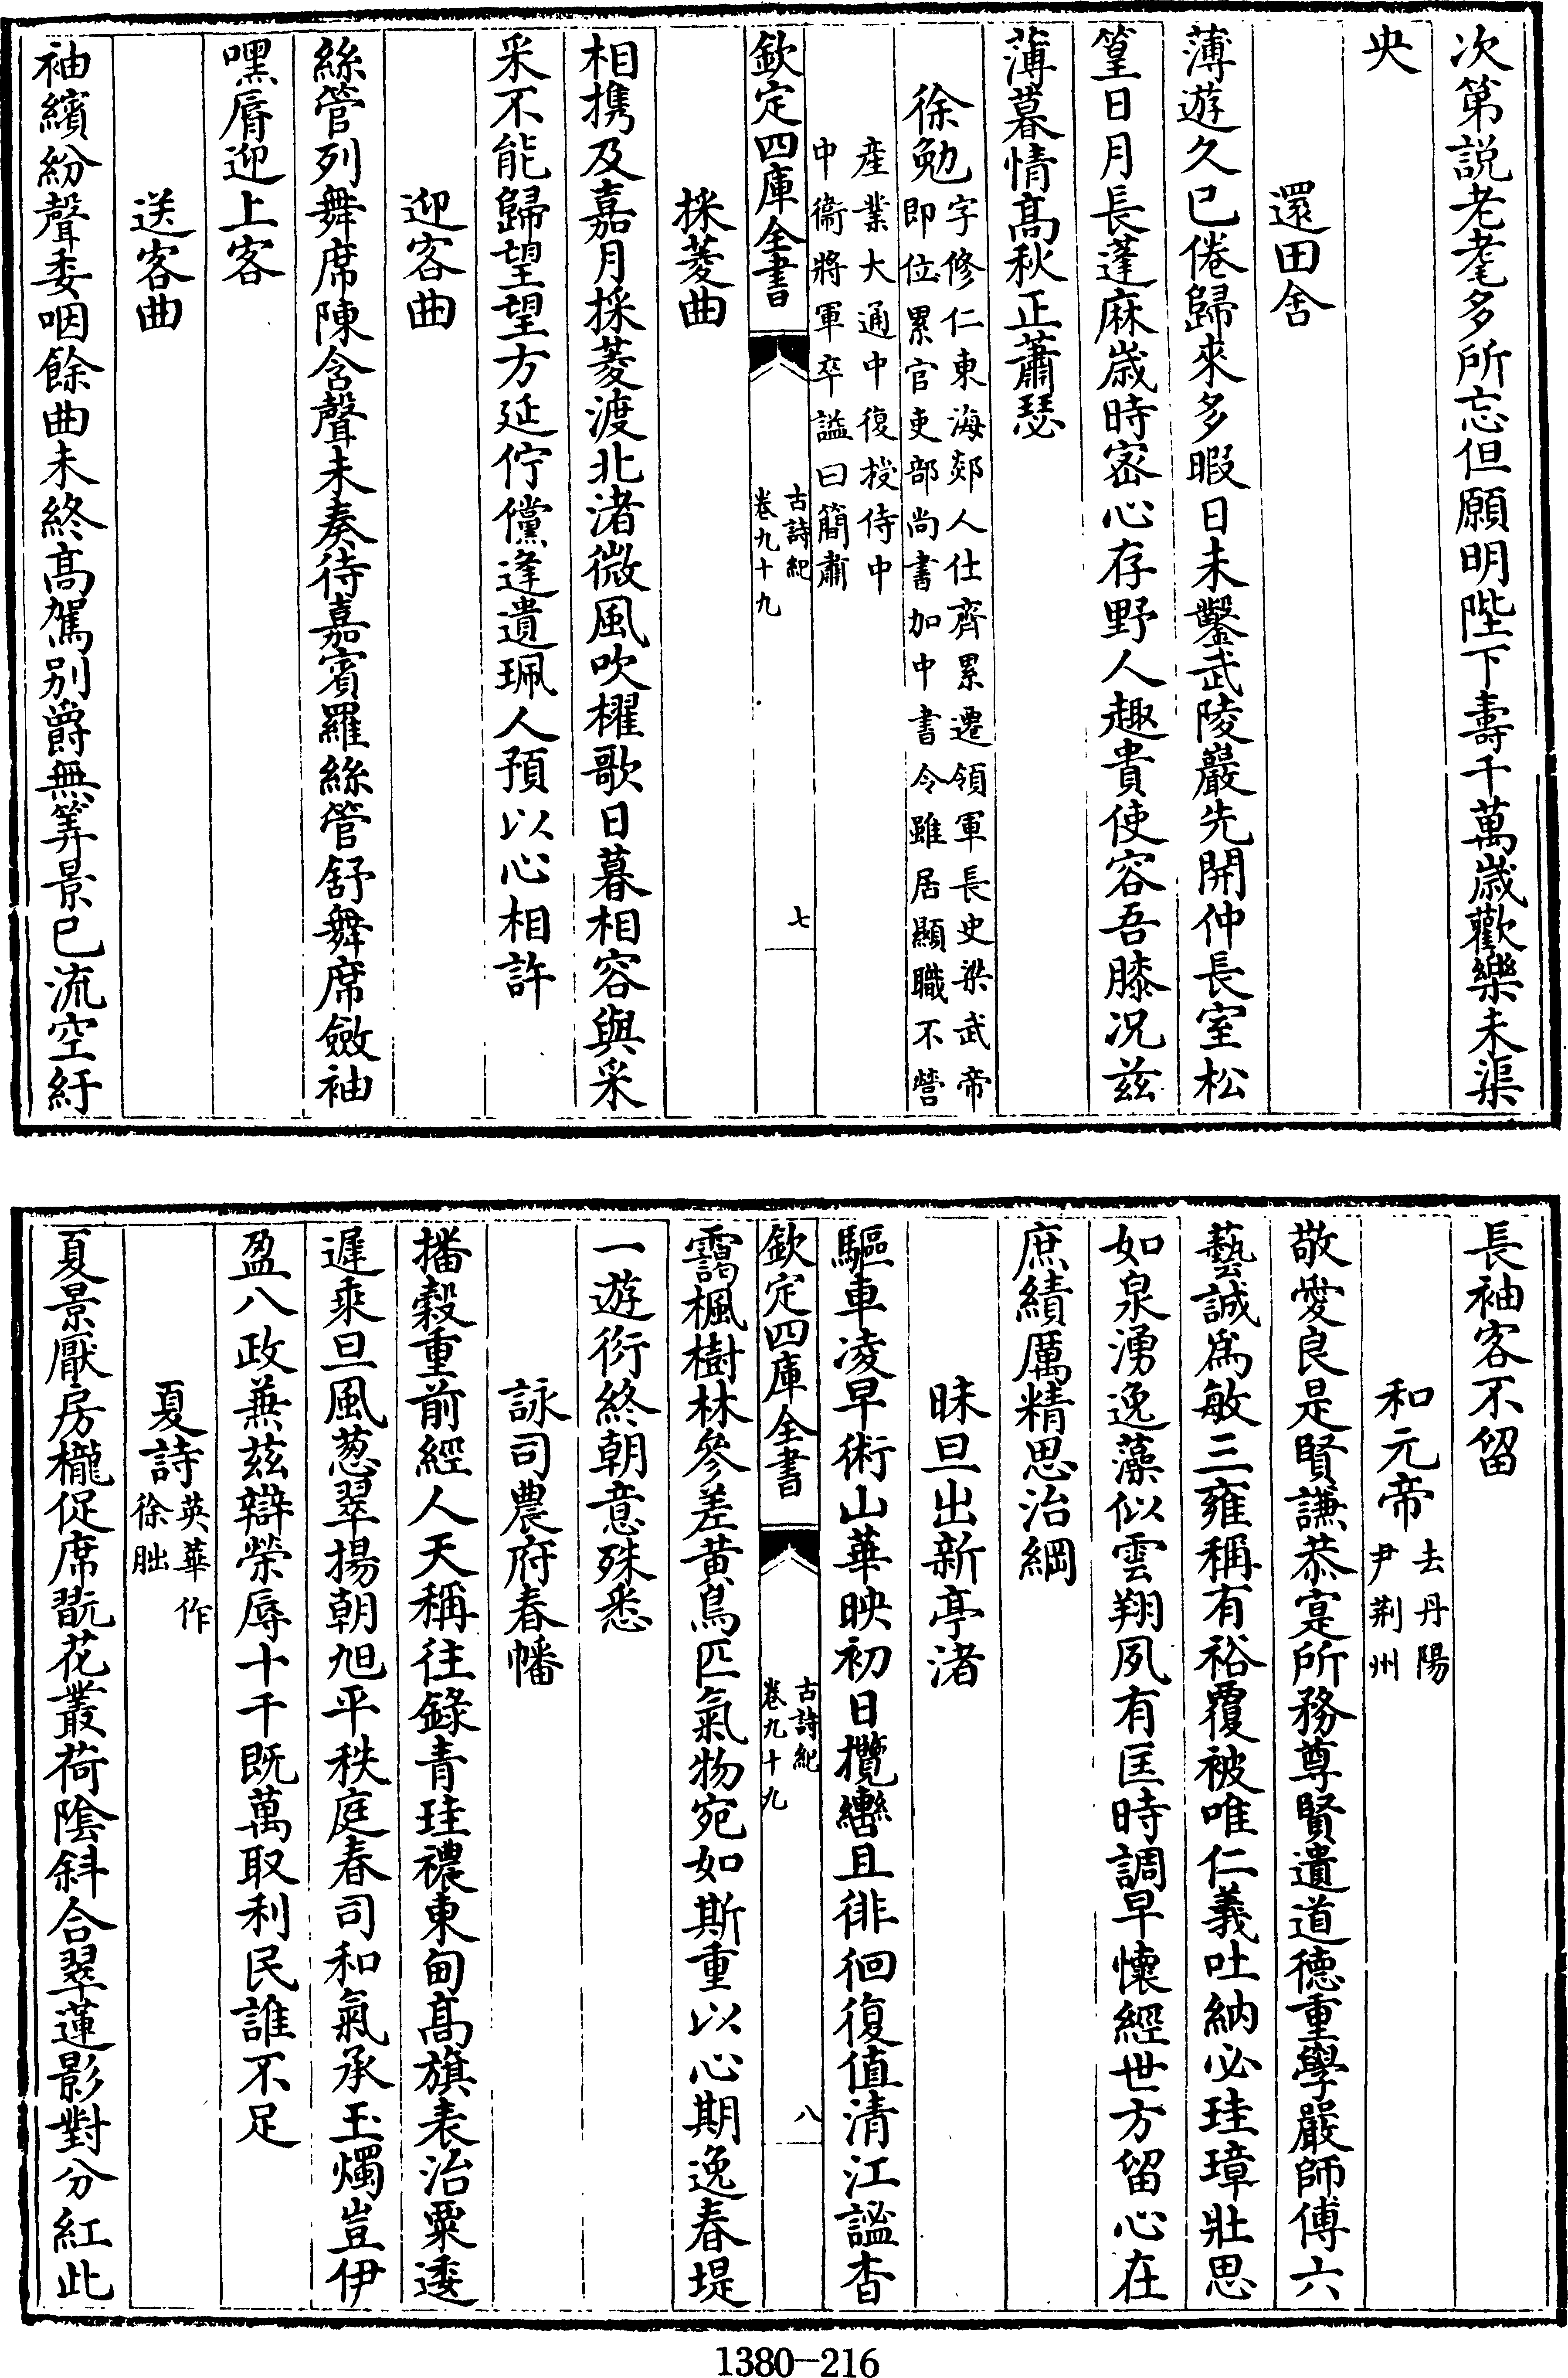 次第説老耄多所忘但願明陛下壽千萬歲歡樂未渠
央
還田舍
薄遊久已倦歸來多暇日未鑿武陵巖先開仲長室松
篁日月長蓬麻歳時宻心存野人趣貴使容吾膝况兹
薄暮情髙秋正蕭瑟
徐勉字修仁東海郯人仕齊累遷領軍長史梁武帝
即位累官吏部尚書加中書令雖居顯職不營
産業大通中復授侍中
中衞將軍卒謚曰簡肅
欽定四庫全書
古詩紀
卷九十九
七
採菱曲
相携及嘉月採菱渡北渚微風吹櫂歌日暮相容與采
采不能歸望望方延佇儻逢遺珮人預以心相許
迎客曲
絲管列舞席陳含聲未奏待嘉賓羅絲管舒舞席斂袖
嘿脣迎上客
送客曲
袖繽紛聲委咽餘曲未終髙駕别爵無筭景已流空紆
長袖客不留
和元帝去丹陽
尹荆州
敬愛良是賢謙恭寔所務尊賢遺道德重學嚴師傅六
藝誠爲敏三雍稱有裕覆被唯仁義吐納必珪璋壯思
如泉湧逸藻似雲翔夙有匡時調早懷經世方留心在
庶績厲精思治綱
昧旦出新亭渚
驅車凌早術山華映初日攬轡且徘徊復值清江謐杳
靄楓樹林參差黄鳥匹氣物宛如斯重以心期逸春堤
一遊衍終朝意殊悉
欽定四庫全書
古詩紀
卷九十九
八
詠司農府春幡
播穀重前經人天稱往錄青珪禯東甸髙旗表治粟逶
遲乘旦風葱翠揚朝旭平秩庭春司和氣承玉燭豈伊
盈八政兼兹辯榮辱十千既萬取利民誰不足
夏詩英華作
徐朏
夏景厭房櫳促席翫花叢荷陰斜合翠蓮影對分紅此
1380-216